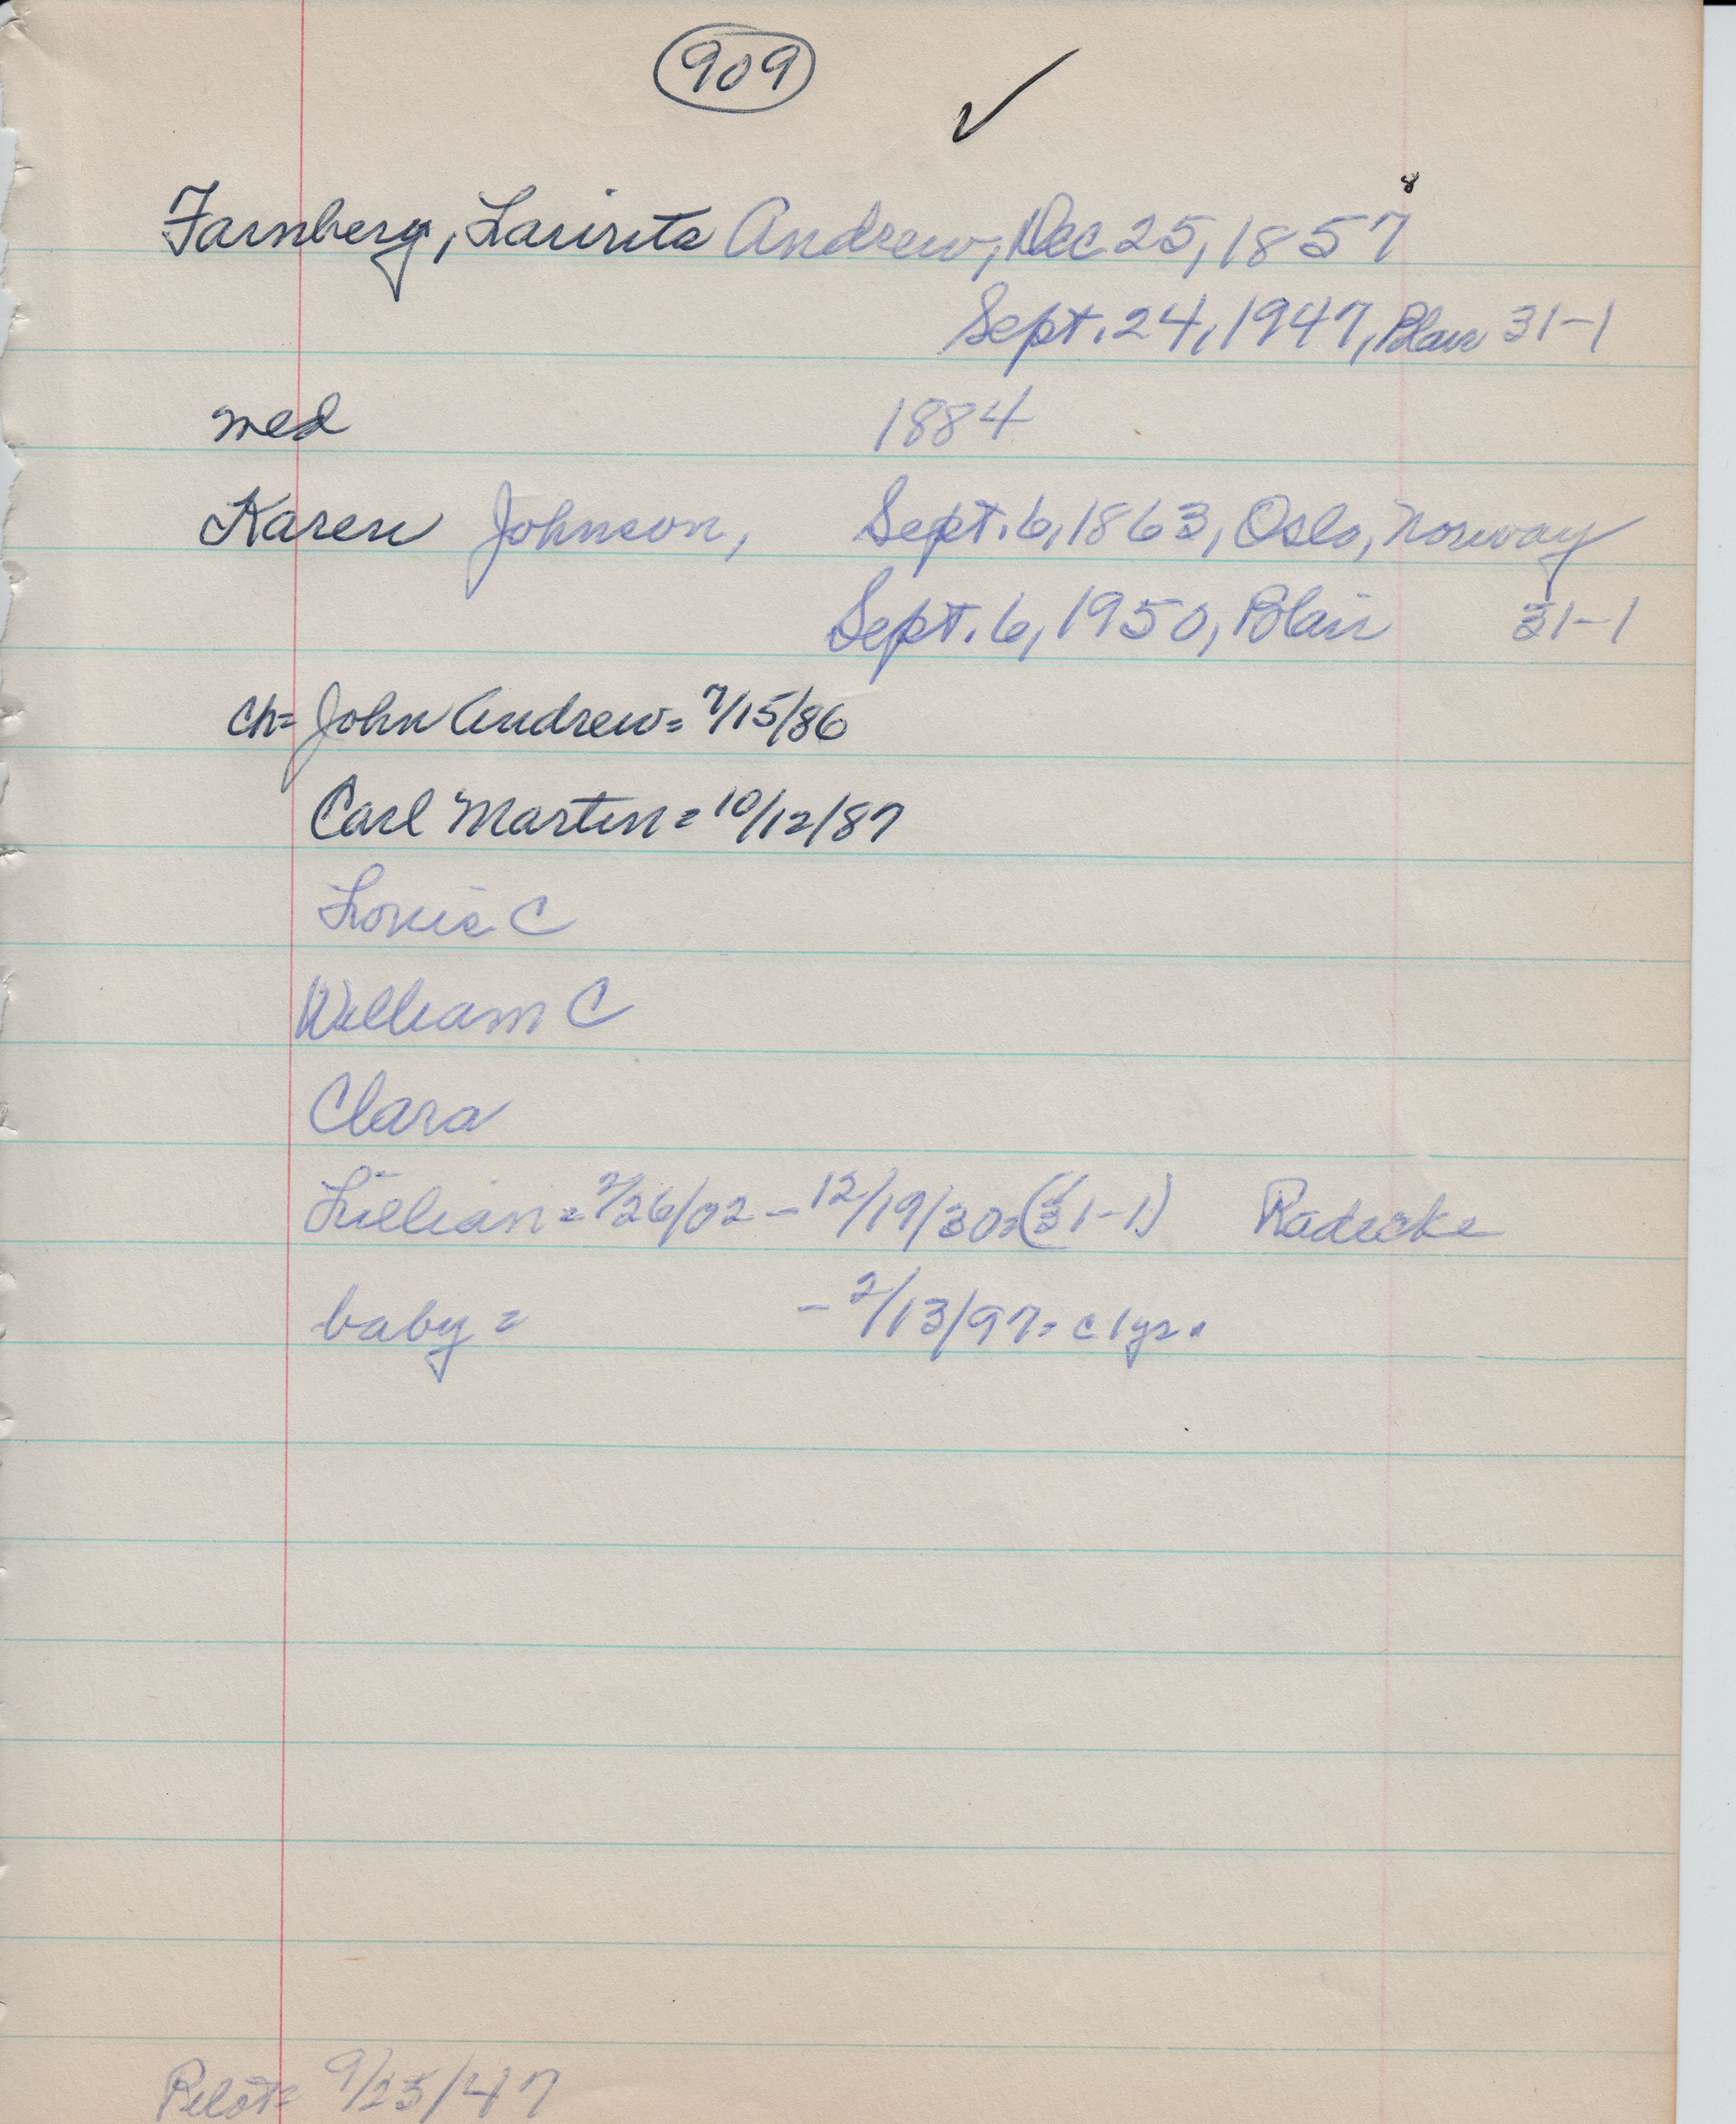 909 ✓
8
Farnberg, Laurits Andrew, Dec 25, 1857
Sept. 24, 1947, Blair 31-1
med 1884
Karen Johnson, Sept. 6, 1863, Oslo, Norway
Sept. 6, 1950, Blair 31-1
ch= John Andrew= 7/15/86
Carl Martin= 10/12/87
Louis C
William C
Clara
Lillian= 2/26/02 - 12/19/30=(31-1) Radecke
baby= - 2/13/97= c 1yr.
Pilot= 9/25/47